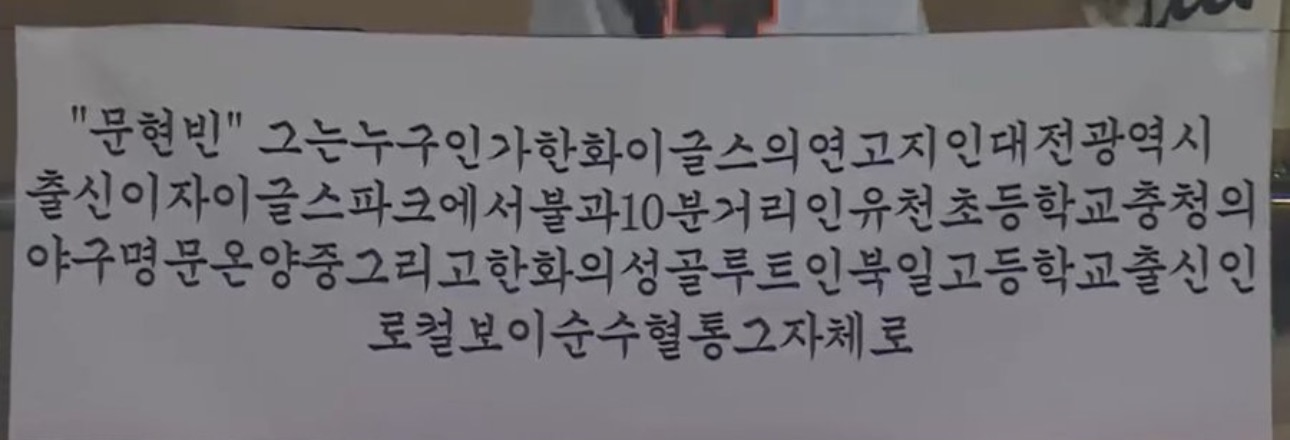 "문현빈" 그는누구인가한화이글스의연고지인대전광역시
출신이자이글스파크에서불과10분거리인유천초등학교충청의
야구명문온양중그리고한화의성골루트인북일고등학교출신인
로컬보이순수혈통그자체로